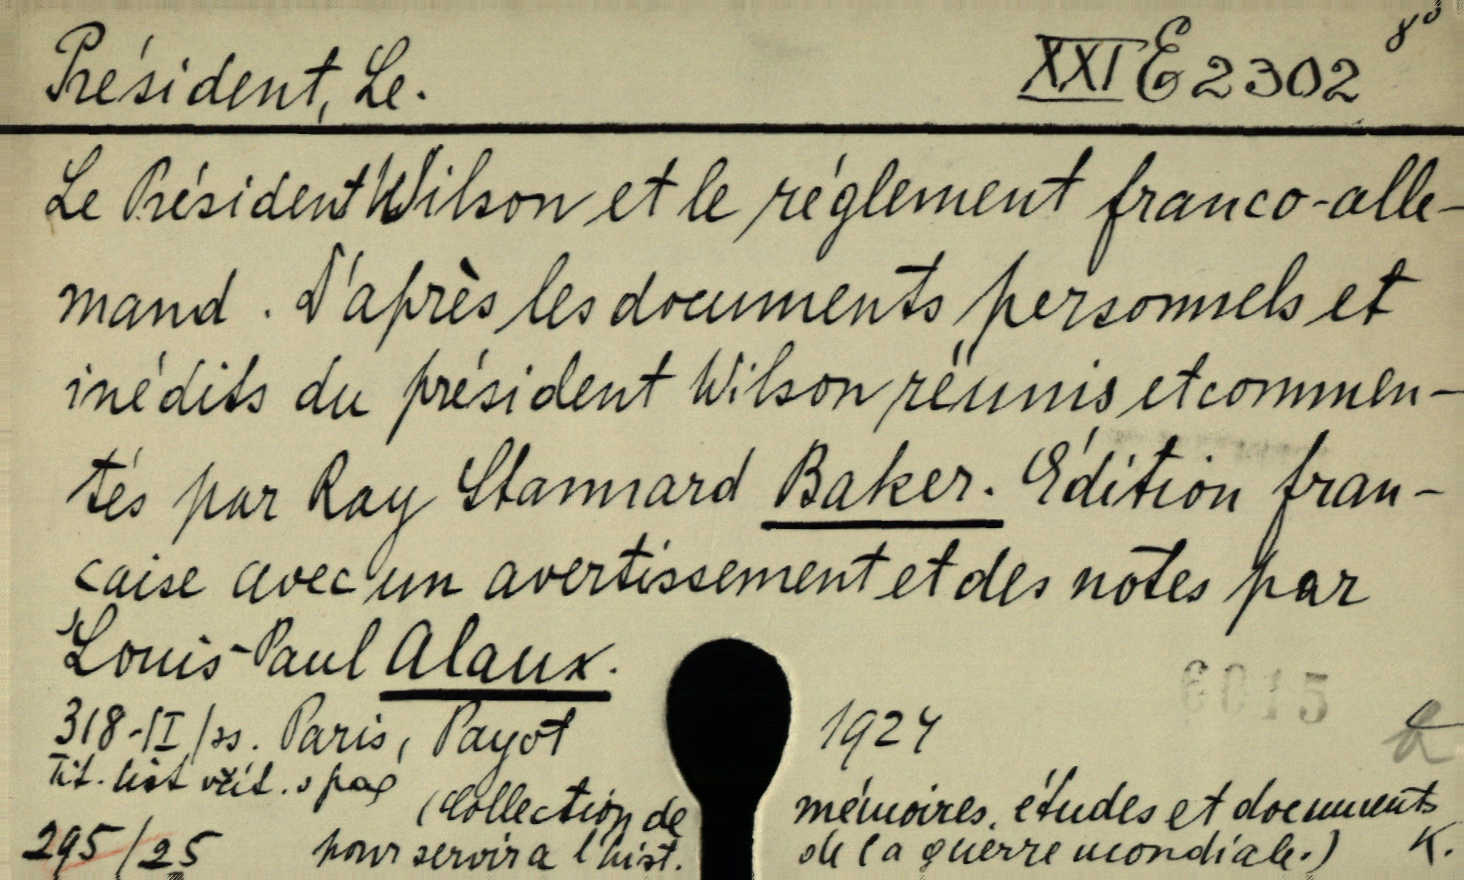 Président, Le. XXI E 2302 8°
Le Président Wilson et le réglement franco-alle-
mand. D'après les documents personnels et
inédits du président Wilson réunis et commen-
tés par Ray Stannard Baker. Édition fran-
caise avec un avertissement et des notes par
Louis-Paul Alaux.
318-II /ss. Paris, Payot 1924
Tit. list včít.
(Collection de mémoires, études et documents
295/25 pour servir a l'hist. de la guerre mondiale.) K.
6015